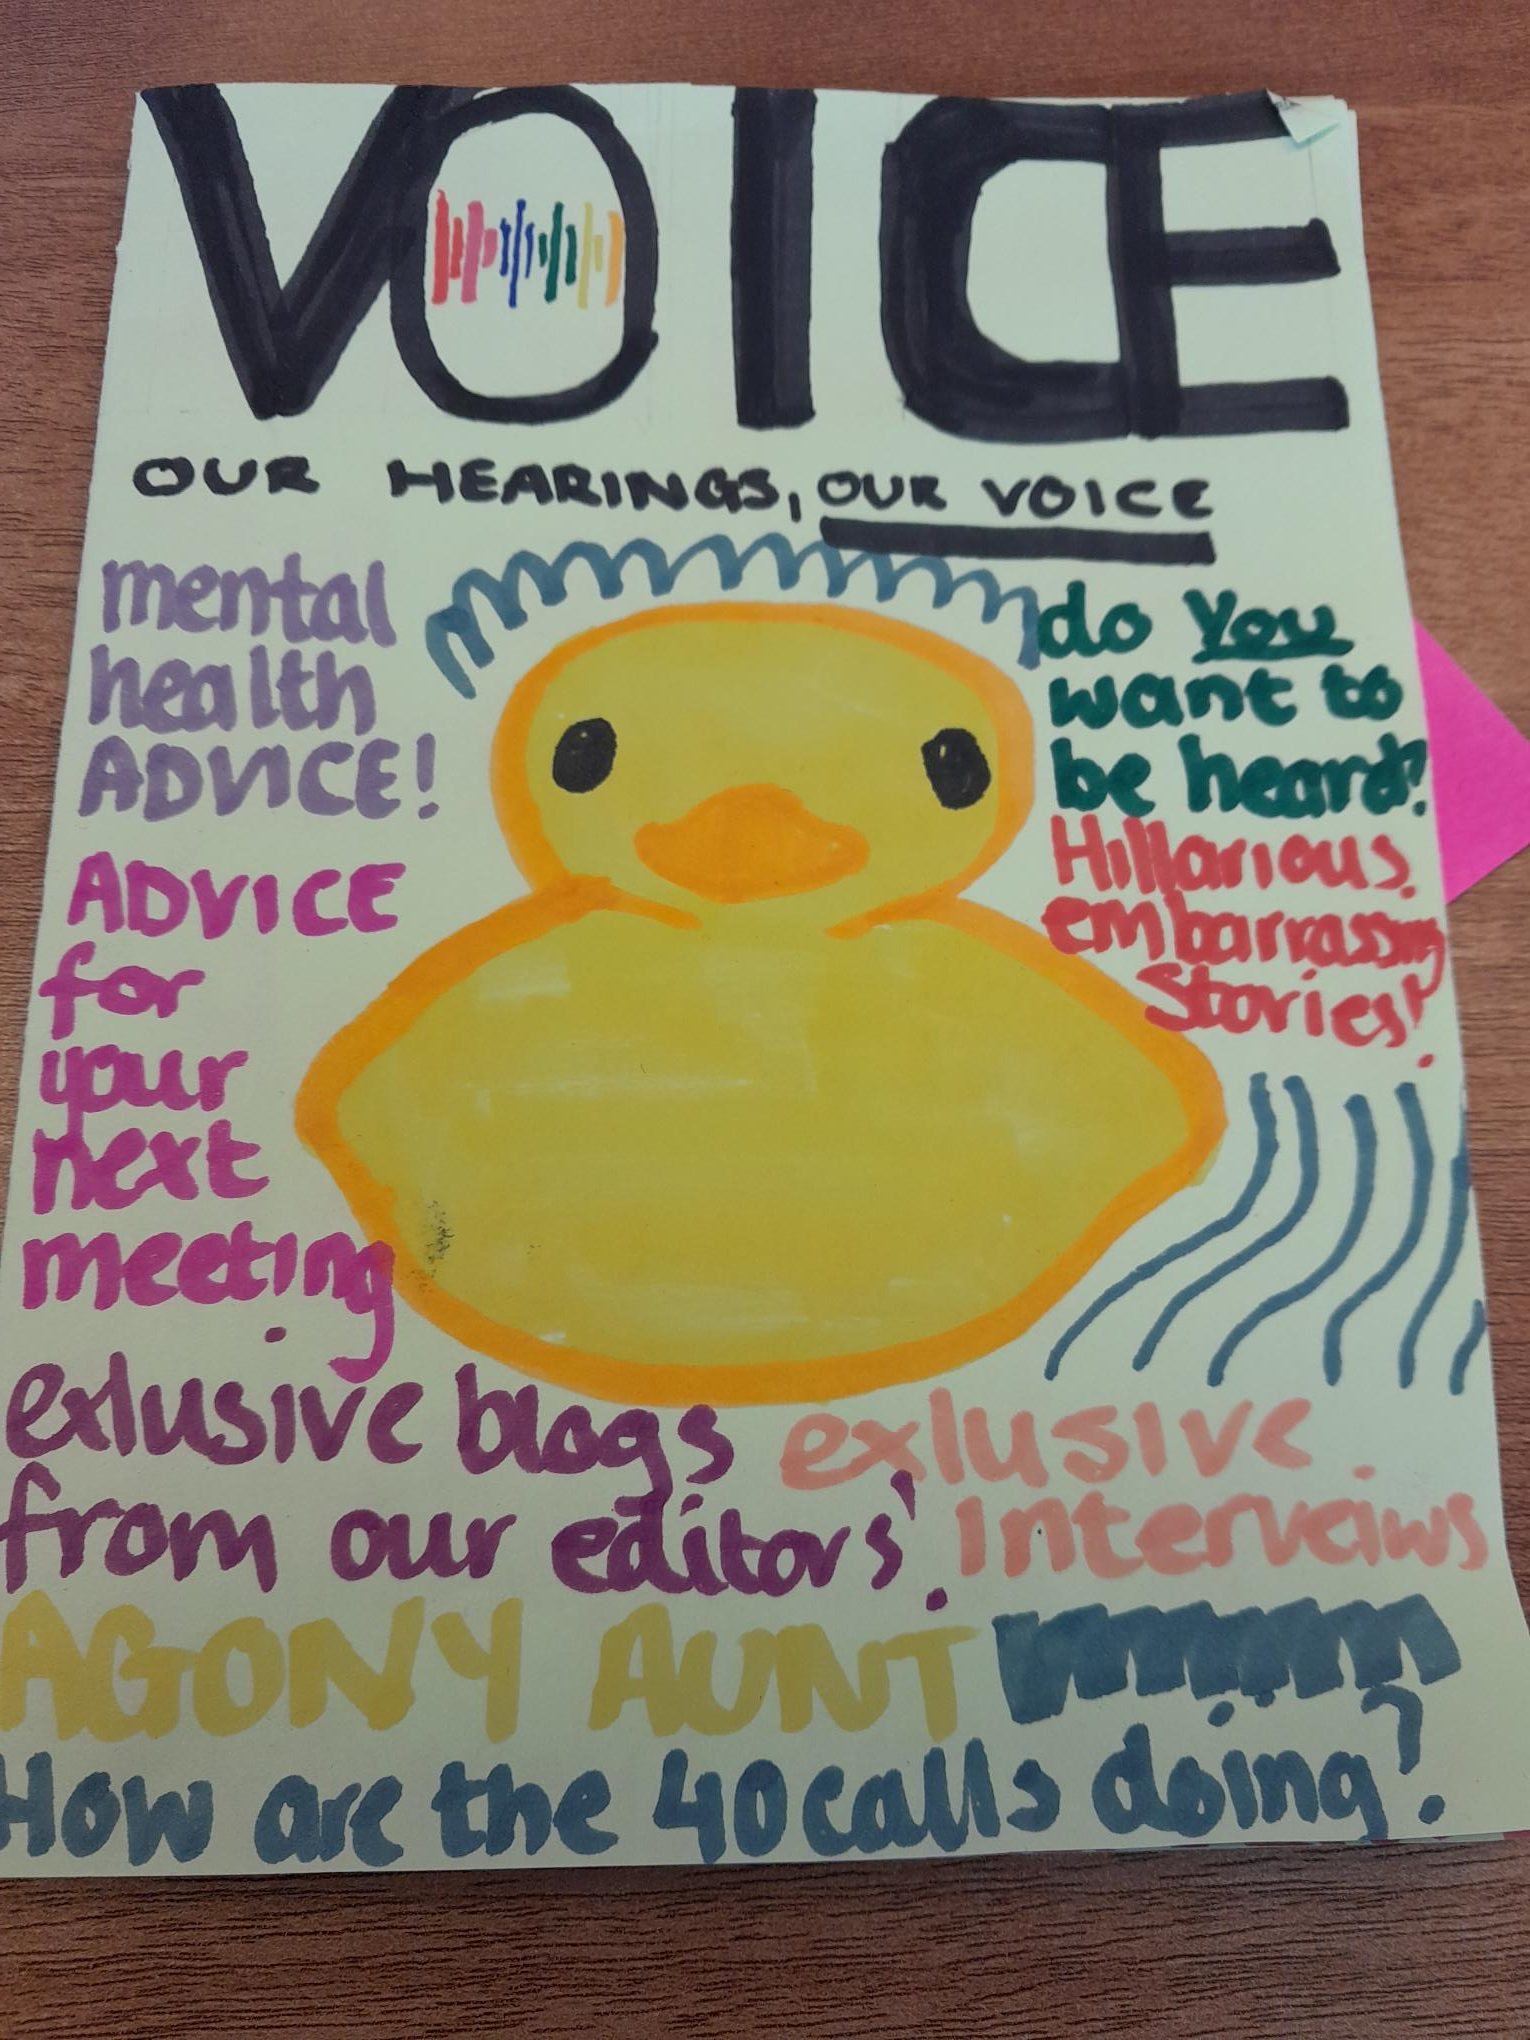 VOICE
OUR HEARINGS, OUR VOICE
mental
health
ADVICE!
do You
want to
be heard?
Hillarious
embarrassing
Stories!
ADVICE
for
your
next
meeting
exlusive blogs
from our editors'.
exlusive
interveiws
AGONY AUNT
How are the 40 calls doing?